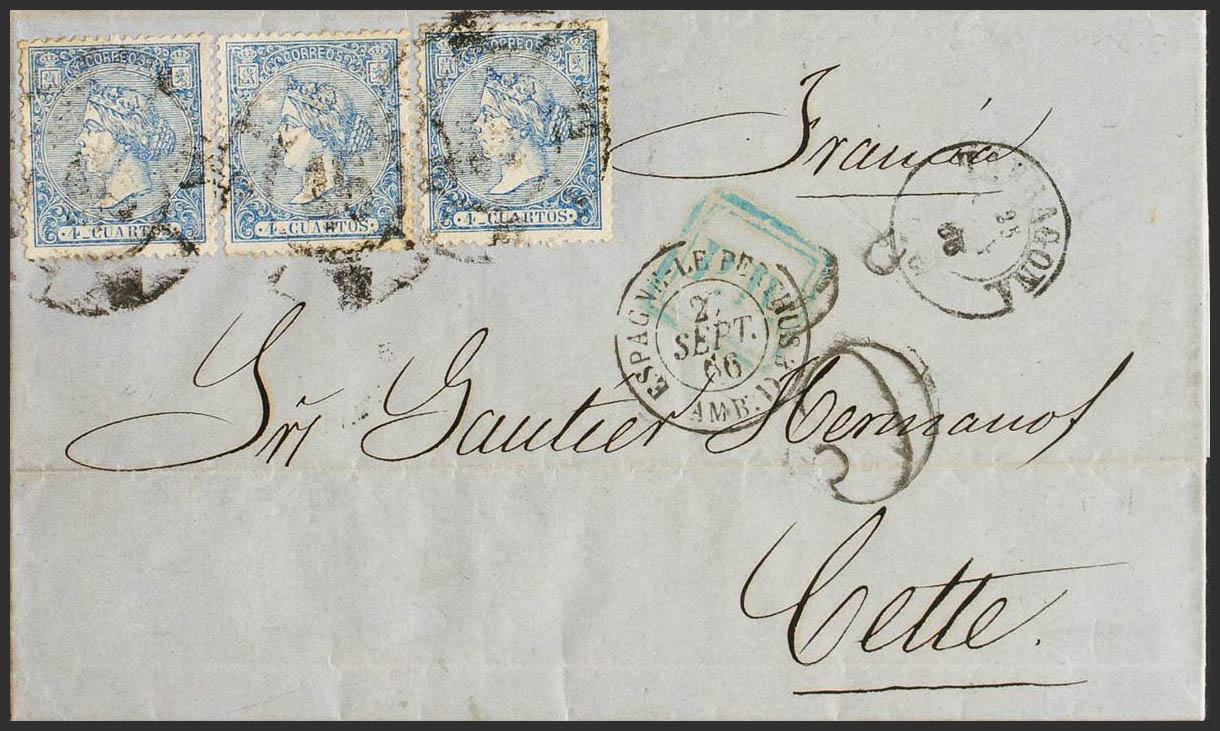 CORREOS CORREOS CORREOS
4 CUARTOS 4 CUARTOS 4 CUARTOS
Francia
TARRAGONA
25
66
ESPAGNE LE PERTHUS
27
SEPT.
66
AMB. D
Srs Gautier Hermanos
Cette.